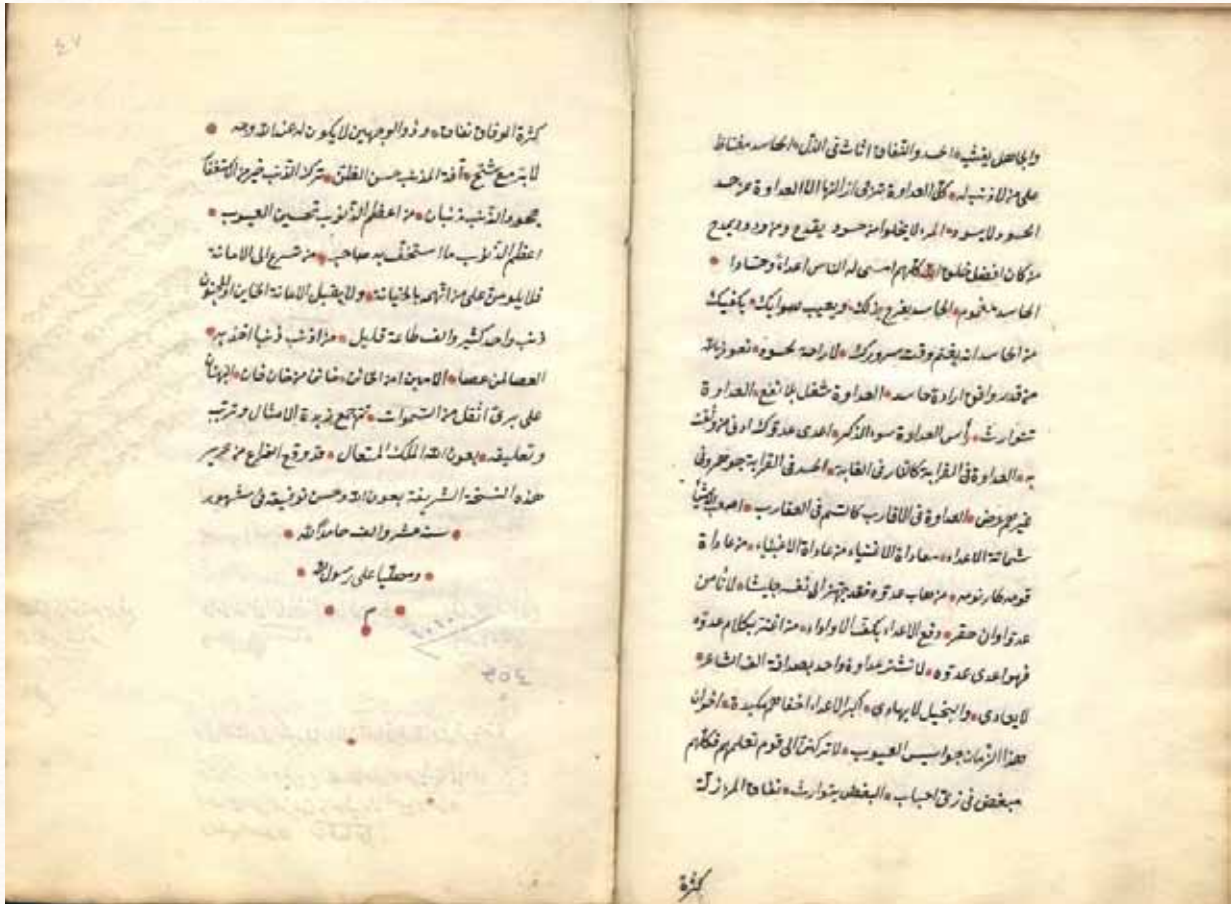 والجاهل يغشيه الحسد والنفاق اثاث فى الذل الحاسد مغتاظ
على من لا ذنب له كل العداوة ترجى ازالتها الا العداوة من حسد
الحسود لا يسود المرء لا يخلوا من حسود يقدح ومن ودود يمدح
من كان افضل خلق الله كلهم امسى له الناس اعداء وحسادا
الحاسد مغموم الحاسد يفرح بزلك ويعيب صوابك يكفيك
من الحاسد انه يغتم وقت سرورك لا راحة لحسود نعوذ بالله
من قدر وافق ارادة حاسد العداوة شغل بلا نفع العداوة
تتوارث رأس العداوة سوء الذكر اعدى عدوك ادنى من وثقت
به العداوة فى القرابة كالنار فى الغابة الحسد فى القرابة جوهر وفى
غيرهم عرض العداوة فى الاقارب كالسم فى العقارب اصعب الاشياء
شماتة الاعداء معاداة الاغنياء من عاداة الاغبياء من عاداة
قومه طار نومه من هاب عدوه فقد جهز الى نفسه جيشا لا تأمن
عدوا وان حقر دفع الاعداء بكف الاولاد من اغتر بكلام عدوه
فهو اعدى عدوه لا تشتر عداوة واحد بصداقة الف الشاعر
لا يعادى والبخيل لا يهادى اكبر الاعداء اخفاهم مكيدة اخوان
هذا الزمان جواسيس العيوب لا تركنن الى قوم تعلمهم فكلهم
مبغض فى زى احباب البغض يتوارث نفاق المرء ذلة
كثرة
٤٧
كثرة الوفاق نفاق وذو الوجهين لا يكون له عند الله وجه
لا بر مع شح آفة المذنب حسن الظن ترك الذنب خير من الاستغفار
جحود الذنب ذنبان من اعظم الذنوب تحسين العيوب
اعظم الذنوب ما استخف به صاحبه من تسرع الى الامانة
فلا يلومن على من اتهمه بالخيانة ولا يقبل الامانة الخاين او المجنون
ذنب واحد كثير والف طاعة قليل من اذنب ذنبا اخذ به
العصا لمن عصا الامين امن الخائن خائن من خان خان البهتان
على برئ اثقل من السموات تم جمع زبدة الامثال وترتب
وتعليقه بعون الله الملك المتعال قد وقع الفراغ من تحرير
هذه النسخة الشريفة بعون الله وحسن توفيقه فى مشهور
سنه عشر والف حامدا لله
ومصليا على رسول الله
م